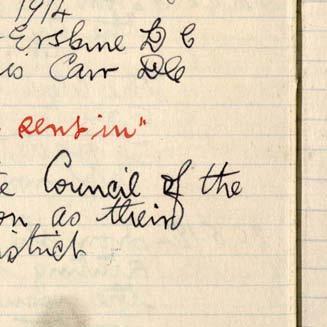 1914
Erskine D C
is Carr DC
sent in"
te Council of the
on as their
istrict